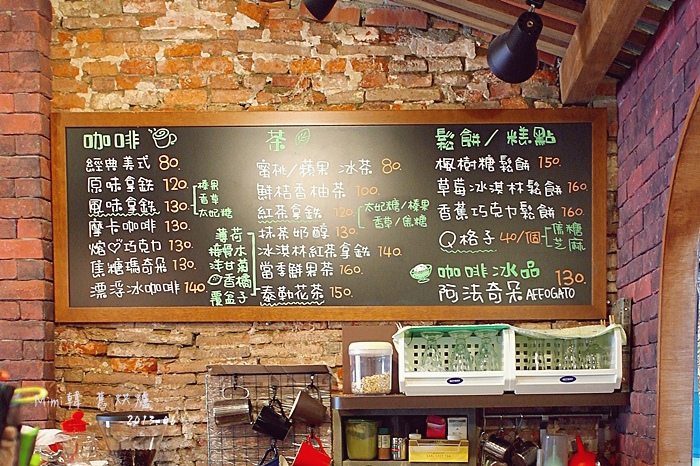 咖啡
經典美式 80.
原味拿鉄 120.
風味拿鉄 130.
榛果
香草
太妃糖
摩卡咖啡 130.
熔心巧克力 130.
焦糖瑪奇朵 130.
漂浮冰咖啡 140.
茶
蜜桃/蘋果 冰茶 80.
鮮桔香柚茶 100.
紅茶拿鉄 120
太妃糖/榛果
香草/焦糖
抹茶奶醇 130.
冰淇林紅茶拿鉄 140.
當季鮮果茶 160.
泰勒花茶 150.
薄荷
接骨木
洋甘菊
香橘
覆盆子
鬆餅/糕點
楓樹糖鬆餅 150.
草莓冰淇林鬆餅 160.
香蕉巧克力鬆餅 160.
Q格子 40/個
焦糖
芝麻
咖啡冰品
阿法奇朵 AFFOGATO 130.
Mimi韓
2013.06